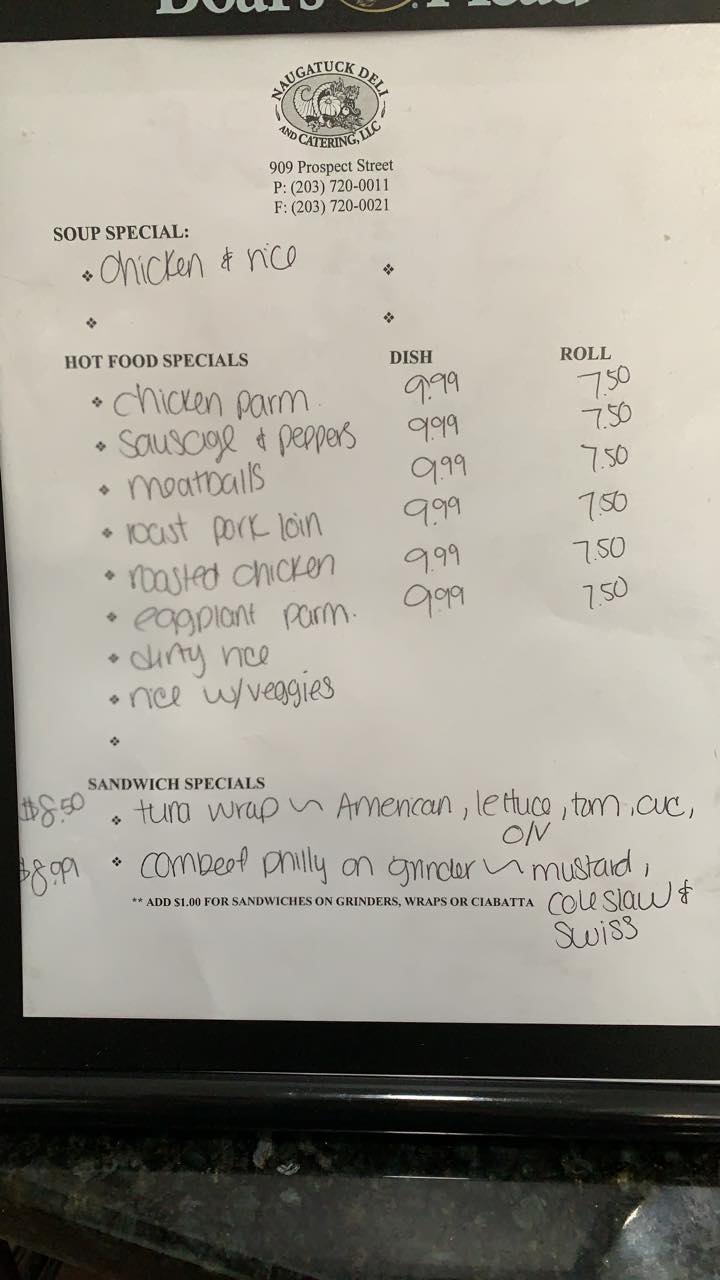 Boar's Head
NAUGATUCK DELI
AND CATERING, LLC
909 Prospect Street
P: (203) 720-0011
F: (203) 720-0021
SOUP SPECIAL:
❖ chicken & rice ❖
❖ ❖
HOT FOOD SPECIALS DISH ROLL
❖ chicken parm. 9.99 7.50
❖ sausage & peppers 9.99 7.50
❖ meatballs 9.99 7.50
❖ roast pork loin 9.99 7.50
❖ roasted chicken 9.99 7.50
❖ eggplant parm. 9.99 7.50
❖ dirty rice
❖ rice w/veggies
❖
SANDWICH SPECIALS
$8.50 ❖ tuna wrap ~ American, lettuce, tom, cuc,
ON
$8.99 ❖ cornbeef philly on grinder ~ mustard,
** ADD $1.00 FOR SANDWICHES ON GRINDERS, WRAPS OR CIABATTA coleslaw &
swiss